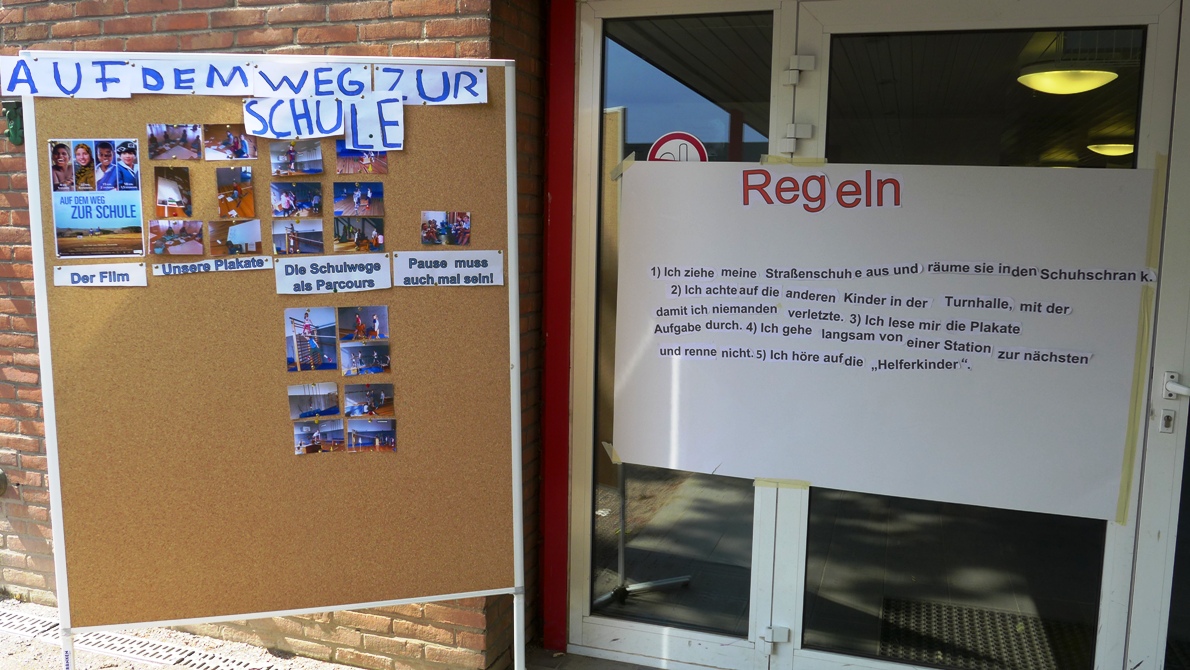 AUF DEM WEG ZUR
SCHULE
AUF DEM WEG
ZUR SCHULE
Der Film
Unsere Plakate
Die Schulwege
als Parcours
Pause muss
auch mal sein!
Regeln
1) Ich ziehe meine Straßenschuhe aus und räume sie in den Schuhschrank.
2) Ich achte auf die anderen Kinder in der Turnhalle, mit der
damit ich niemanden verletzte. 3) Ich lese mir die Plakate
Aufgabe durch. 4) Ich gehe langsam von einer Station zur nächsten
und renne nicht. 5) Ich höre auf die „Helferkinder“.